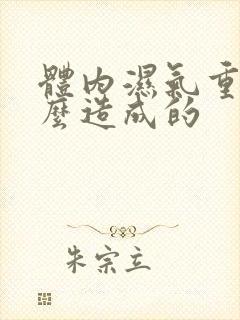 體內濕氣重
麼造成的
朱宗立